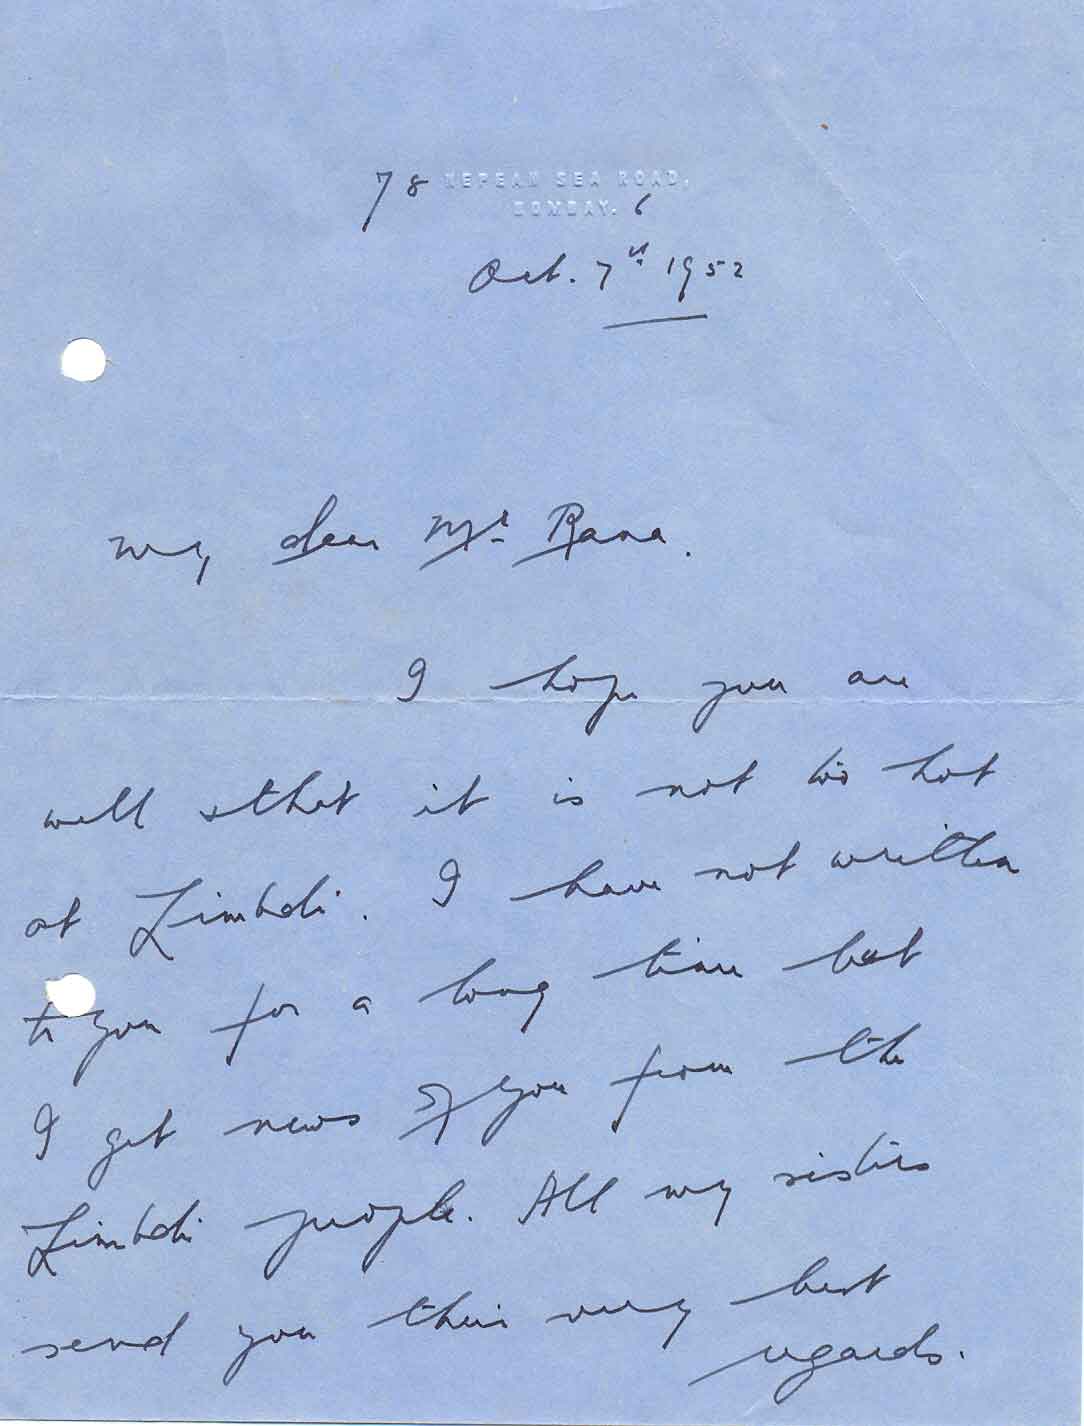 78 NEPEAN SEA ROAD,
BOMBAY. 6
Oct. 7st 1952
My dear Mr Rana.
I hope you are
well & that it is not too hot
at Limbdi. I have not written
to you for a long time but
I get news of you from the
Limbdi people. All my sisters
send you their very best
regards.